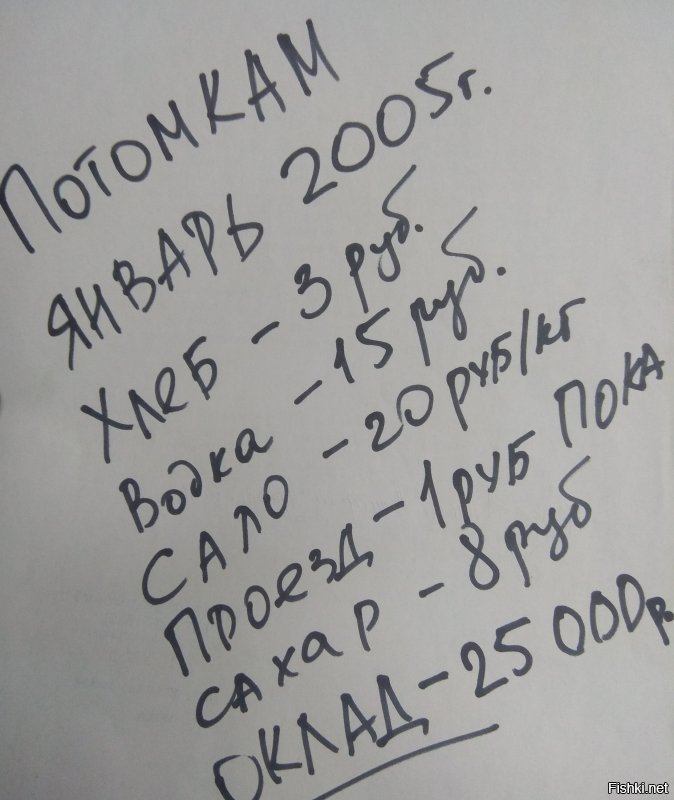 ПОТОМКАМ
ЯНВАРЬ 2005г.
ХЛЕБ - 3 руб.
Водка - 15 руб.
САЛО - 20 руб/кг
ПРОЕЗД - 1 руб ПОКА
САХАР - 8 руб
ОКЛАД - 25 000р.
Fishki.net